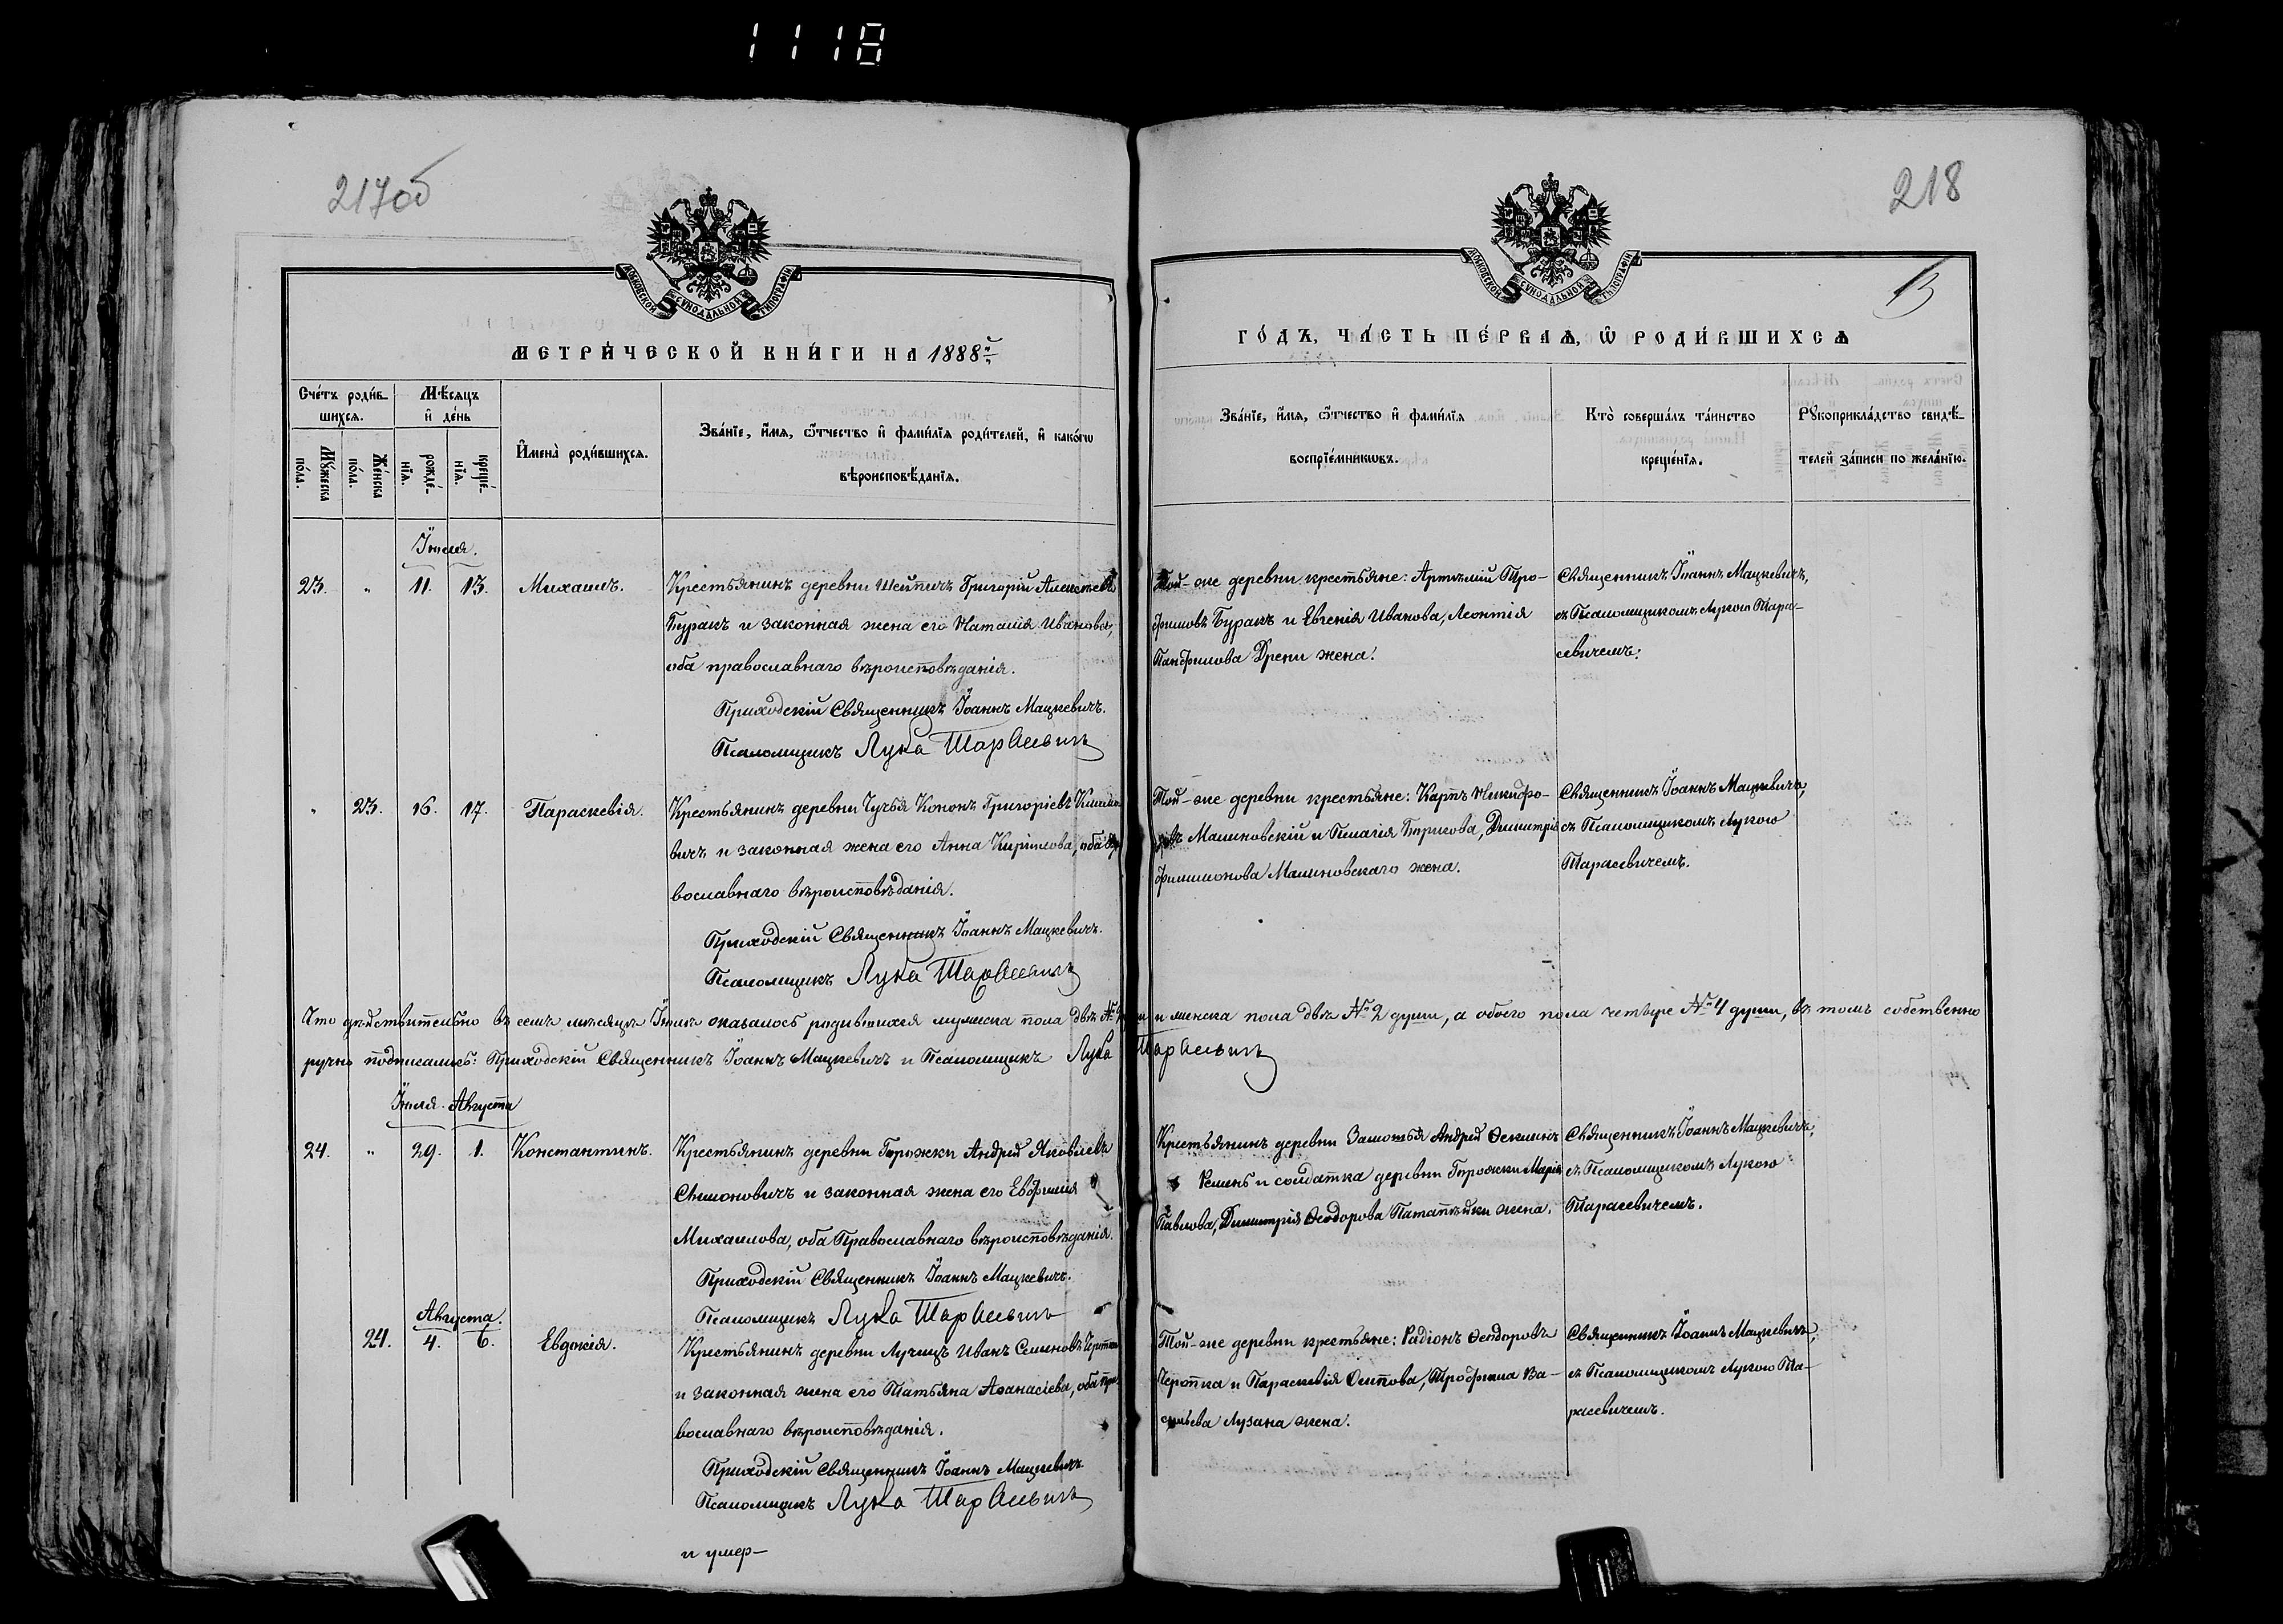 1118
217об
218
13
МОСКОВСКОЙ СѴНОДАЛЬНОЙ ТИПОГРАФІИ
МОСКОВСКОЙ СѴНОДАЛЬНОЙ ТИПОГРАФІИ
МЕТРИ́ЧЕСКОЙ КНИ́ГИ НА 1888й
ГО́ДЪ, ЧА́СТЬ ПЕ́РВАѦ, Ѿ РОДИ́ВШИХСѦ
Сче́тъ роди́в-
шихся.
Мѣ́сяцъ
и҆ де́нь
Мꙋ́жеска по́ла.
Же́нска по́ла.
рожде́-
нїя.
креще́-
нїя.
И҆мена̀ роди́вшихся.
Зва́нїе, и҆́мя, ѻ҆́тчество и҆ фами́лїя роди́телей, и҆ како́гѡ
вѣроисповѣ́данїя.
Зва́нїе, и҆́мя, ѻ҆́тчество и҆ фами́лїя
воспрїе́мникѡвъ.
Кто̀ соверша́лъ та́инство
креще́нїя.
Рꙋкоприкла́дство свидѣ́-
телей за́писи по жела́нїю.
Іюля.
23. " 11. 13. Михаилъ. Крестьянинъ деревни Шейпичъ Григорій Алексѣевъ
Буракъ и законная жена его Наталія Иванова,
оба православнаго вѣроисповѣданія.
Приходскій Священникъ Іоаннъ Мацкевичъ.
Псаломщикъ Лука Тарасевичъ
Той-же деревни крестьяне: Артемій Тро-
фимовъ Буракъ и Евгенія Иванова, Леонтія
Панфилова Дрени жена.
Священникъ Іоаннъ Мацкевичъ,
съ Псаломщикомъ Лукою Тара-
севичемъ.
" 23. 16. 17. Параскевія. Крестьянинъ деревни Чучья Кононъ Григоріевъ
вичъ и законная жена его Анна Кирилова, оба пра
вославнаго вѣроисповѣданія.
Приходскій Священникъ Іоаннъ Мацкевичъ.
Псаломщикъ Лука Тарасевичъ
Той-же деревни крестьяне: Карпъ Никифо-
ровъ Малиновскій и Пелагія Димитрія
Филимонова Малиновскаго жена.
Священникъ Іоаннъ Мацкевичъ,
съ Псаломщикомъ Лукою
Тарасевичемъ.
Что дѣйствительно въ семъ мѣсяцѣ Іюлѣ оказалось родившихся мужеска пола двѣ № 2 и женска пола двѣ № 2 души, а обоего пола четыре № 4 души, въ томъ собственно
ручно подписались: Приходскій Священникъ Іоаннъ Мацкевичъ и Псаломщикъ Лука Тарасевичъ
Іюля. Августа
24. " 29. 1. Константинъ. Крестьянинъ деревни Андрей Яковлевъ
Симоновичъ и законная жена его Евфимія
Михаилова, оба Православнаго вѣроисповѣданія.
Приходскій Священникъ Іоаннъ Мацкевичъ.
Псаломщикъ Лука Тарасевичъ
Крестьянинъ деревни Замотья Андрей
и солдатка деревни Марія
Павлова, Димитрія Ѳеодорова жена.
Священникъ Іоаннъ Мацкевичъ,
съ Псаломщикомъ Лукою
Тарасевичемъ.
Августа.
24. 4. 6. Евдокія. Крестьянинъ деревни Лучицъ Иванъ Семеновъ
и законная жена его Татьяна Аѳанасіева, оба пра
вославнаго вѣроисповѣданія.
Приходскій Священникъ Іоаннъ Мацкевичъ.
Псаломщикъ Лука Тарасевичъ
Той-же деревни крестьяне: Радіонъ Ѳеодоровъ
Черотка и Параскевія Осипова, Трофима Ва-
сильева Лузана жена.
Священникъ Іоаннъ Мацкевичъ,
съ Псаломщикомъ Лукою Та-
расевичемъ.
и умер-